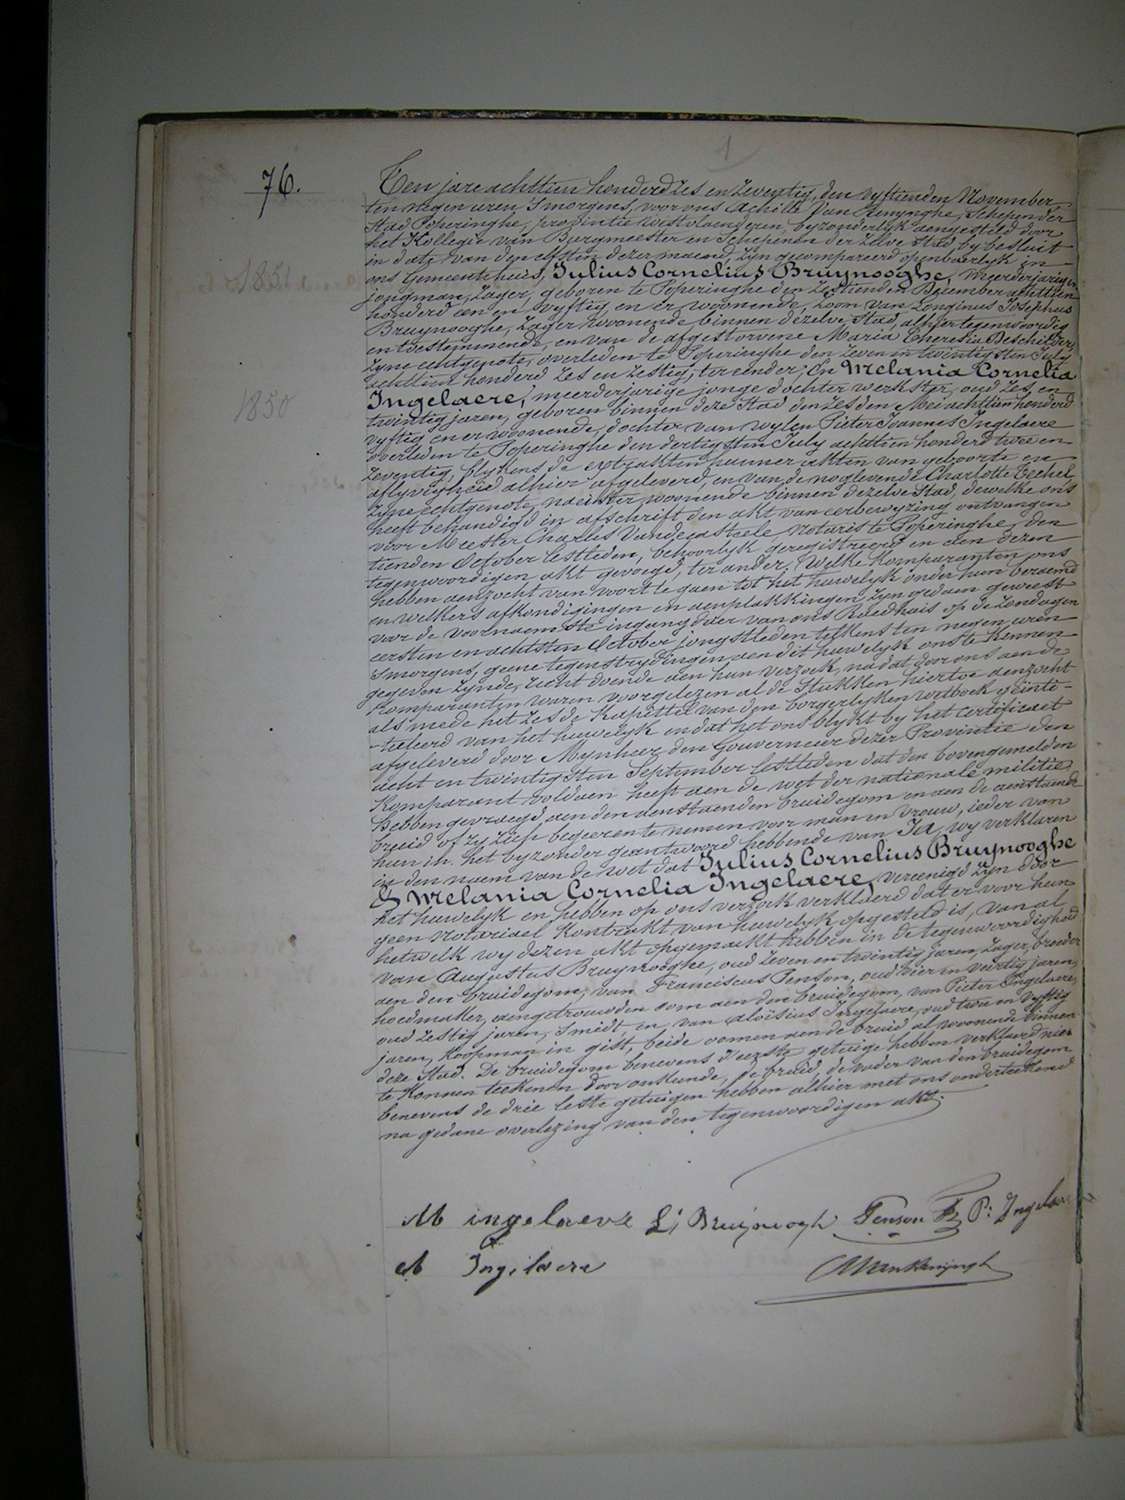 76.
Ten jare achttien honderd zes en zeventig, den vyftienden November
ten negen uren 's morgens, voor ons Achille Van Renynghe, Schepen der
Stad Poperinghe, provintie Westvlaenderen, byzonderlyk aengesteld door
het Kollegie van Burgmeester en Schepenen der zelve Stad by besluit
in date van den elfsten dezer maend, zyn gecompareerd openbaerlyk in
ons Gemeentehuis, Julius Cornelius Bruynooghe, meerderjarigen
1851
jongman, Zager, geboren te Poperinghe den zestienden December achttien
honderd een en vyftig, en er woonende, zoon van Longinus Josephus
Bruynooghe, Zager woonende binnen dezelve Stad, alhier tegenwoordig
en toestemmende, en van de afgestorvene Maria Theresia Beschilder,
zyne echtgenote, overleden te Poperinghe den zeven en twintigsten July
achttien honderd zes en zestig, ter eender; En Melania Cornelia
1850
Ingelaere, meerderjarige jonge dochter werkster, oud zes en
twintig jaren, geboren binnen deze Stad den zesden Mei achttien honderd
vyftig en er woonende, dochter van wylen Pieter Joannes Ingelaere
overleden te Poperinghe den dertigsten July achttien honderd twee en
zeventig, blykens de extrakten hunner akten van geboorte en
aflyvigheid alhier afgeleverd, en van de noglevende Charlotte
zyne echtgenote, naeister woonende binnen dezelve Stad, dewelke ons
heeft behandigd in afschrift den akt van eerbewyzing ontvangen
voor Meester Charles Vandecasteele, Notaris te Poperinghe, den
tienden October lestleden, behoorlyk geregistreerd en aen dezen
tegenwoordigen akt gevoegd, ter ander; Welke Komparanten ons
hebben aenzocht van voort te gaen tot het huwelyk onder hun beraemd
en welkers afkondigingen en aenplakkingen zyn gedaen geweest
voor de voornaemste ingangdeur van ons Raedhuis op de zondagen
eersten en achtsten October jongstleden telkens ten negen uren
's morgens, geene tegenstrydingen aen dit huwelyk ons te kennen
gegeven zynde, recht doende aen hun verzoek, na dat door ons aen de
komparanten waren voorgelezen al de Stukken hiertoe aenzocht
als mede het zesde Kapittel van den borgerlyken wetboek geinti-
-tuleerd van het huwelyk en dat het ons blykt by het certificaet
afgeleverd door Mynheer den Gouverneur dezer Provintie den
acht en twintigsten September lestleden dat den bovengemelden
Komparant voldaen heeft aen de wet der nationale militie
Hebben gevraegd, aen den aenstaenden bruidegom en aen de aenstaende
bruid of zy zich begeeren te nemen voor man en vrouw, ieder van
hun in het byzonder geantwoord hebbende van Ja, wy verklaren
in den naem van de wet dat Julius Cornelius Bruynooghe
& Melania Cornelia Ingelaere, vereenigd zyn door
het huwelyk en hebben op ons verzoek verklaerd dat er voor hun
geen Notariael Kontrakt van huwelyk opgesteld is, van al
hetwelk wy dezen akt opgemaekt hebben in de tegenwoordigheid
van Augustus Bruynooghe, oud zeven en twintig jaren, zager, broeder
aen den bruidegom, van Franciscus Penson, oud vier en veertig jaren,
hoedmaker, aengetrouwden oom aen den bruidegom, van Pieter Ingelaere,
oud zestig jaren, smidt, en van Aloïsius Ingelaere, oud twee en vyftig
jaren, Koopman in gist, beide oomen aen de bruid al woonende binnen
deze Stad. De bruidegom benevens d'eerste getuige hebben verklaerd niet
te Konnen teekenen door onkunde, de bruid, de vader van den bruidegom
benevens de drie leste getuigen hebben alhier met ons onderteekend
na gedane overlezing van den tegenwoordigen akt.
M ingelaere L: Bruijnoogh Penson Fr P: Ingelaere
A Ingelaere AVanRenynghe